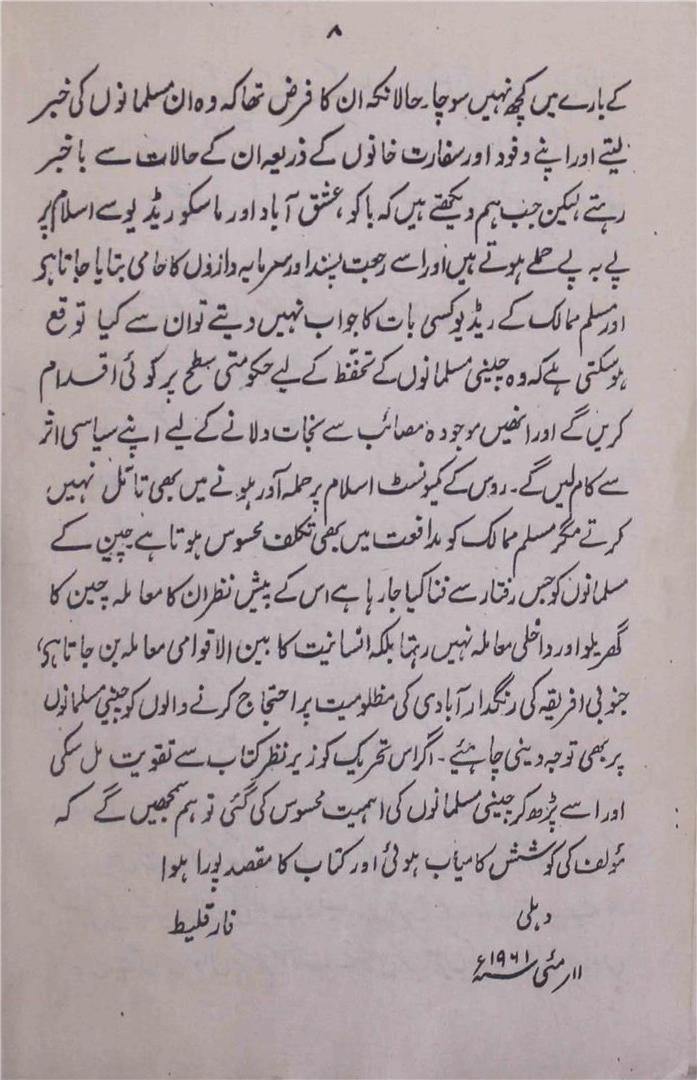 ۸
کے بارے میں کچھ نہیں سوچا۔ حالانکہ ان کا فرض تھا کہ وہ ان مسلمانوں کی خبر
لیتے اور اپنے وفود اور سفارت خانوں کے ذریعہ ان کے حالات سے باخبر
رہتے لیکن جب ہم دیکھتے ہیں کہ باکو، عشق آباد اور ماسکو ریڈیو سے اسلام پر
پے بہ پے حملے ہوتے ہیں اور اسے رجعت پسند اور سرمایہ داروں کا حامی بتایا جاتا ہے
اور مسلم ممالک کے ریڈیو کسی بات کا جواب نہیں دیتے تو ان سے کیا توقع
ہو سکتی ہے کہ وہ چینی مسلمانوں کے تحفظ کے لیے حکومتی سطح پر کوئی اقدام
کریں گے اور انھیں موجودہ مصائب سے نجات دلانے کے لیے اپنے سیاسی اثر
سے کام لیں گے۔ روس کے کمیونسٹ اسلام پر حملہ آور ہونے میں بھی تامّل نہیں
کرتے مگر مسلم ممالک کو مدافعت میں بھی تکلف محسوس ہوتا ہے چین کے
مسلمانوں کو جس رفتار سے فنا کیا جا رہا ہے اس کے پیش نظر ان کا معاملہ چین کا
گھریلو اور داخلی معاملہ نہیں رہتا بلکہ انسانیت کا بین الاقوامی معاملہ بن جاتا ہے،
جنوبی افریقہ کی رنگدار آبادی کی مظلومیت پر احتجاج کرنے والوں کو چینی مسلمانوں
پر بھی توجہ دینی چاہئیے۔ اگر اس تحریک کو زیر نظر کتاب سے تقویت مل سکی
اور اسے پڑھ کر چینی مسلمانوں کی اہمیت محسوس کی گئی تو ہم سمجھیں گے کہ
مؤلف کی کوشش کامیاب ہوئی اور کتاب کا مقصد پورا ہوا
دہلی فارقلیط
۱۱ مئی ۱۹۶۱ء